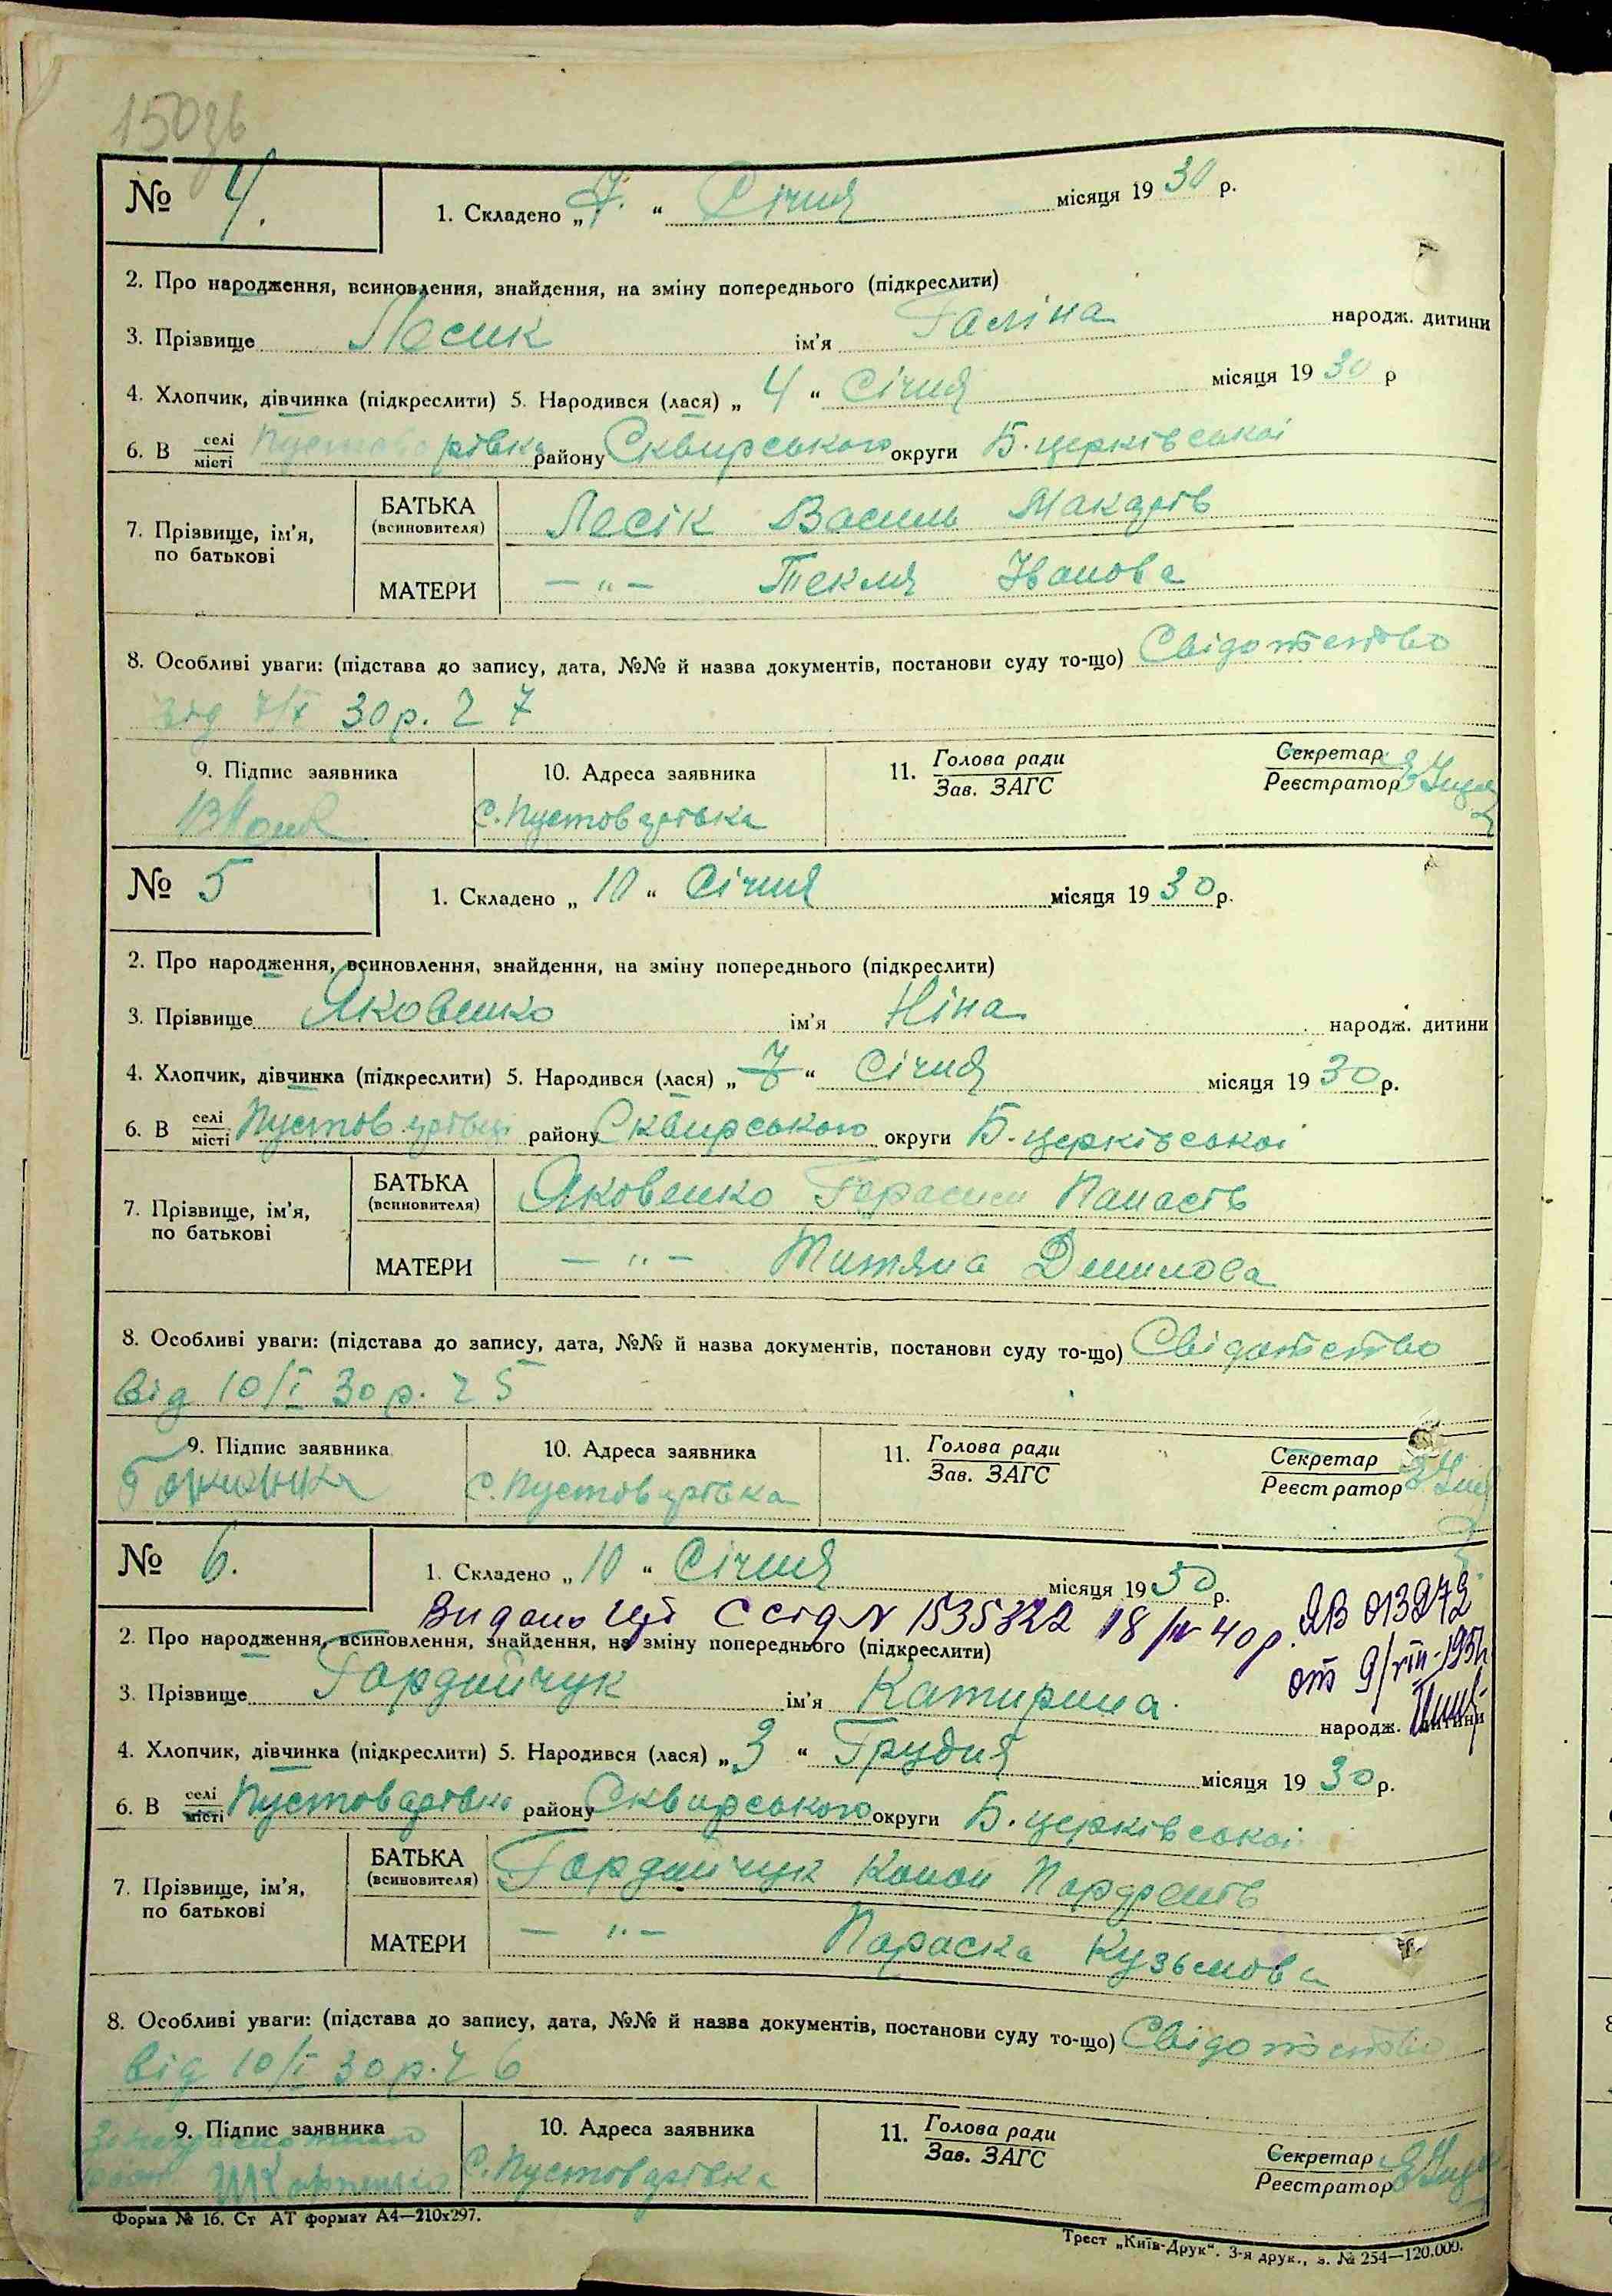 150зв
№ 4.
1. Складено „ 7. “ Січня місяця 19 30 р.
2. Про народження, всиновлення, знайдення, на зміну попереднього (підкреслити)
3. Прізвище Лесик ім'я Галіна народж. дитини
4. Хлопчик, дівчинка (підкреслити) 5. Народився (лася) „ 4 “ Січня місяця 19 30 р
6. В селі/місті Пустоварівка району Сквирського округи Б. церківської
7. Прізвище, ім'я, по батькові
БАТЬКА (всиновителя) Лесік Василь Макарів
МАТЕРИ — „ — Текля Іванова
8. Особливі уваги: (підстава до запису, дата, №№ й назва документів, постанови суду то-що) Свідотство
від 7/I 30 р. 2 7
9. Підпис заявника
10. Адреса заявника
11. Голова ради
Зав. ЗАГС
Секретар
Реєстратор
с. Пустоварівка
№ 5
1. Складено „ 10 “ Січня місяця 19 30 р.
2. Про народження, всиновлення, знайдення, на зміну попереднього (підкреслити)
3. Прізвище Яковенко ім'я Ніна народж. дитини
4. Хлопчик, дівчинка (підкреслити) 5. Народився (лася) „ 7 “ Січня місяця 19 30 р.
6. В селі/місті Пустоварівці району Сквирського округи Б. церківської
7. Прізвище, ім'я, по батькові
БАТЬКА (всиновителя) Яковенко Гарасим Панасів
МАТЕРИ — „ — Титяна Демидова
8. Особливі уваги: (підстава до запису, дата, №№ й назва документів, постанови суду то-що) Свідотство
від 10/I 30 р. 2 5
9. Підпис заявника
10. Адреса заявника
11. Голова ради
Зав. ЗАГС
Секретар
Реєстратор
с. Пустоварівка
№ 6.
1. Складено „ 10 “ Січня місяця 19 30 р.
Видано N 1535322 18/IV 40 р. ЯВ 013272
2. Про народження, всиновлення, знайдення, на зміну попереднього (підкреслити)
от 9/VIII-195
3. Прізвище Гордийчук ім'я Катирина народж. дитини
4. Хлопчик, дівчинка (підкреслити) 5. Народився (лася) „ 3 “ Грудня місяця 19 30 р.
6. В селі/місті Пустоварівка району Сквирського округи Б. церківської
7. Прізвище, ім'я, по батькові
БАТЬКА (всиновителя) Гордийчук Конон
МАТЕРИ — „ — Параска Кузьмова
8. Особливі уваги: (підстава до запису, дата, №№ й назва документів, постанови суду то-що) Свідотство
від 10/I 30 р. 2 6
9. Підпис заявника
10. Адреса заявника
11. Голова ради
Зав. ЗАГС
Секретар
Реєстратор
с. Пустоварівка
Форма № 16. Ст АТ формат А4—210x297.
Трест „Київ-Друк“. 3-я друк., з. № 254—120.000.